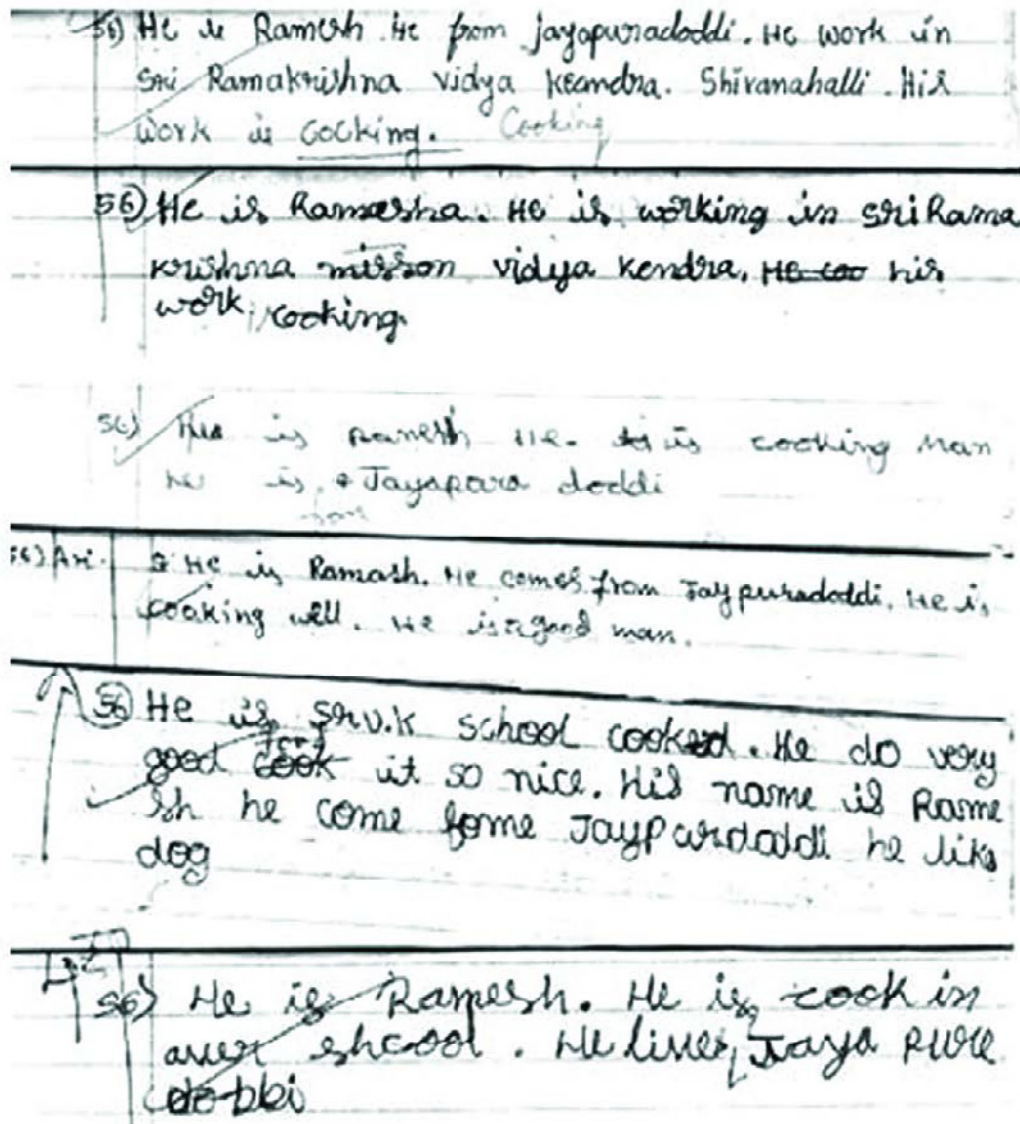 56) He is Ramesh. He from jayapuradoddi. He work in
Sri Ramakrishna vidya keandra. Shivanahalli. His
work is cocking. Cooking
56) He is Ramesha. He is working in sri Rama
krishna misson vidya kendra. He coo his
work, cooking.
56) His is ramesh He. is cooking man
he is Jayapara doddi
from
56) Ari. He is Ramash. He comes from Jaypuradoddi. He is
cooking well. He is a good man.
56 He is srv.k school cooked. He do very
good cook it so nice. His name is Rame
sh he come fome Jaypurdoddi he like
dog
56) He is Ramesh. He is cook in
aver shcool. He lives Jaya pure
dobbi